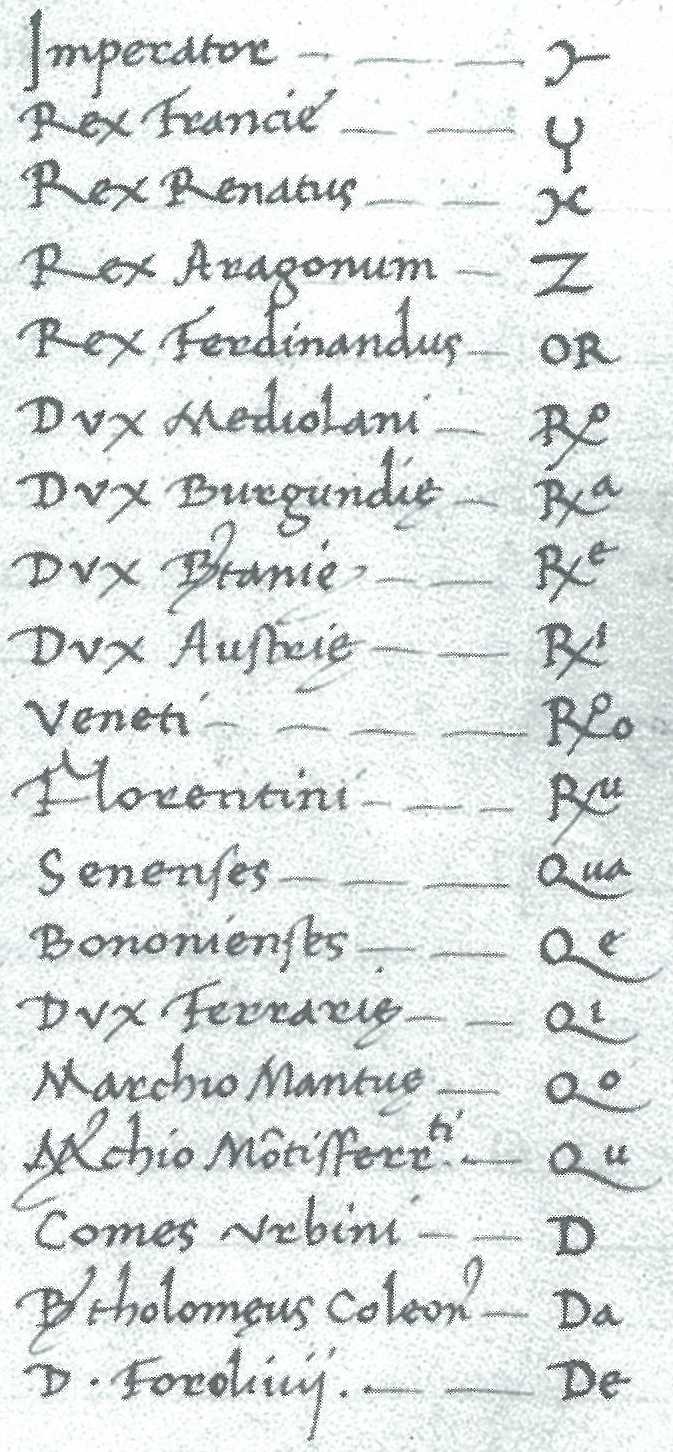 Imperator — — — ϰ
Rex Francie — — Y
Rex Renatus — — x
Rex Aragonum — Z
Rex Ferdinandus — OR
Dvx Mediolani — Rxº
Dvx Burgundię — Rxª
Dvx Btanię — — Rxᵉ
Dvx Auſtrię — — Rxⁱ
Veneti — — — — Rxºo
Florentini — — — Rxᵘ
Senenſes — — — Qua
Bononienſes — — Qe
Dvx Ferrarię — — Qi
Marchio Mantuę — Qo
Mchio Mōtiſferrᵗⁱ. — Qu
Comes Vrbini — — D
Btholomęus Coleon — Da
D. Foroliuij. — — De